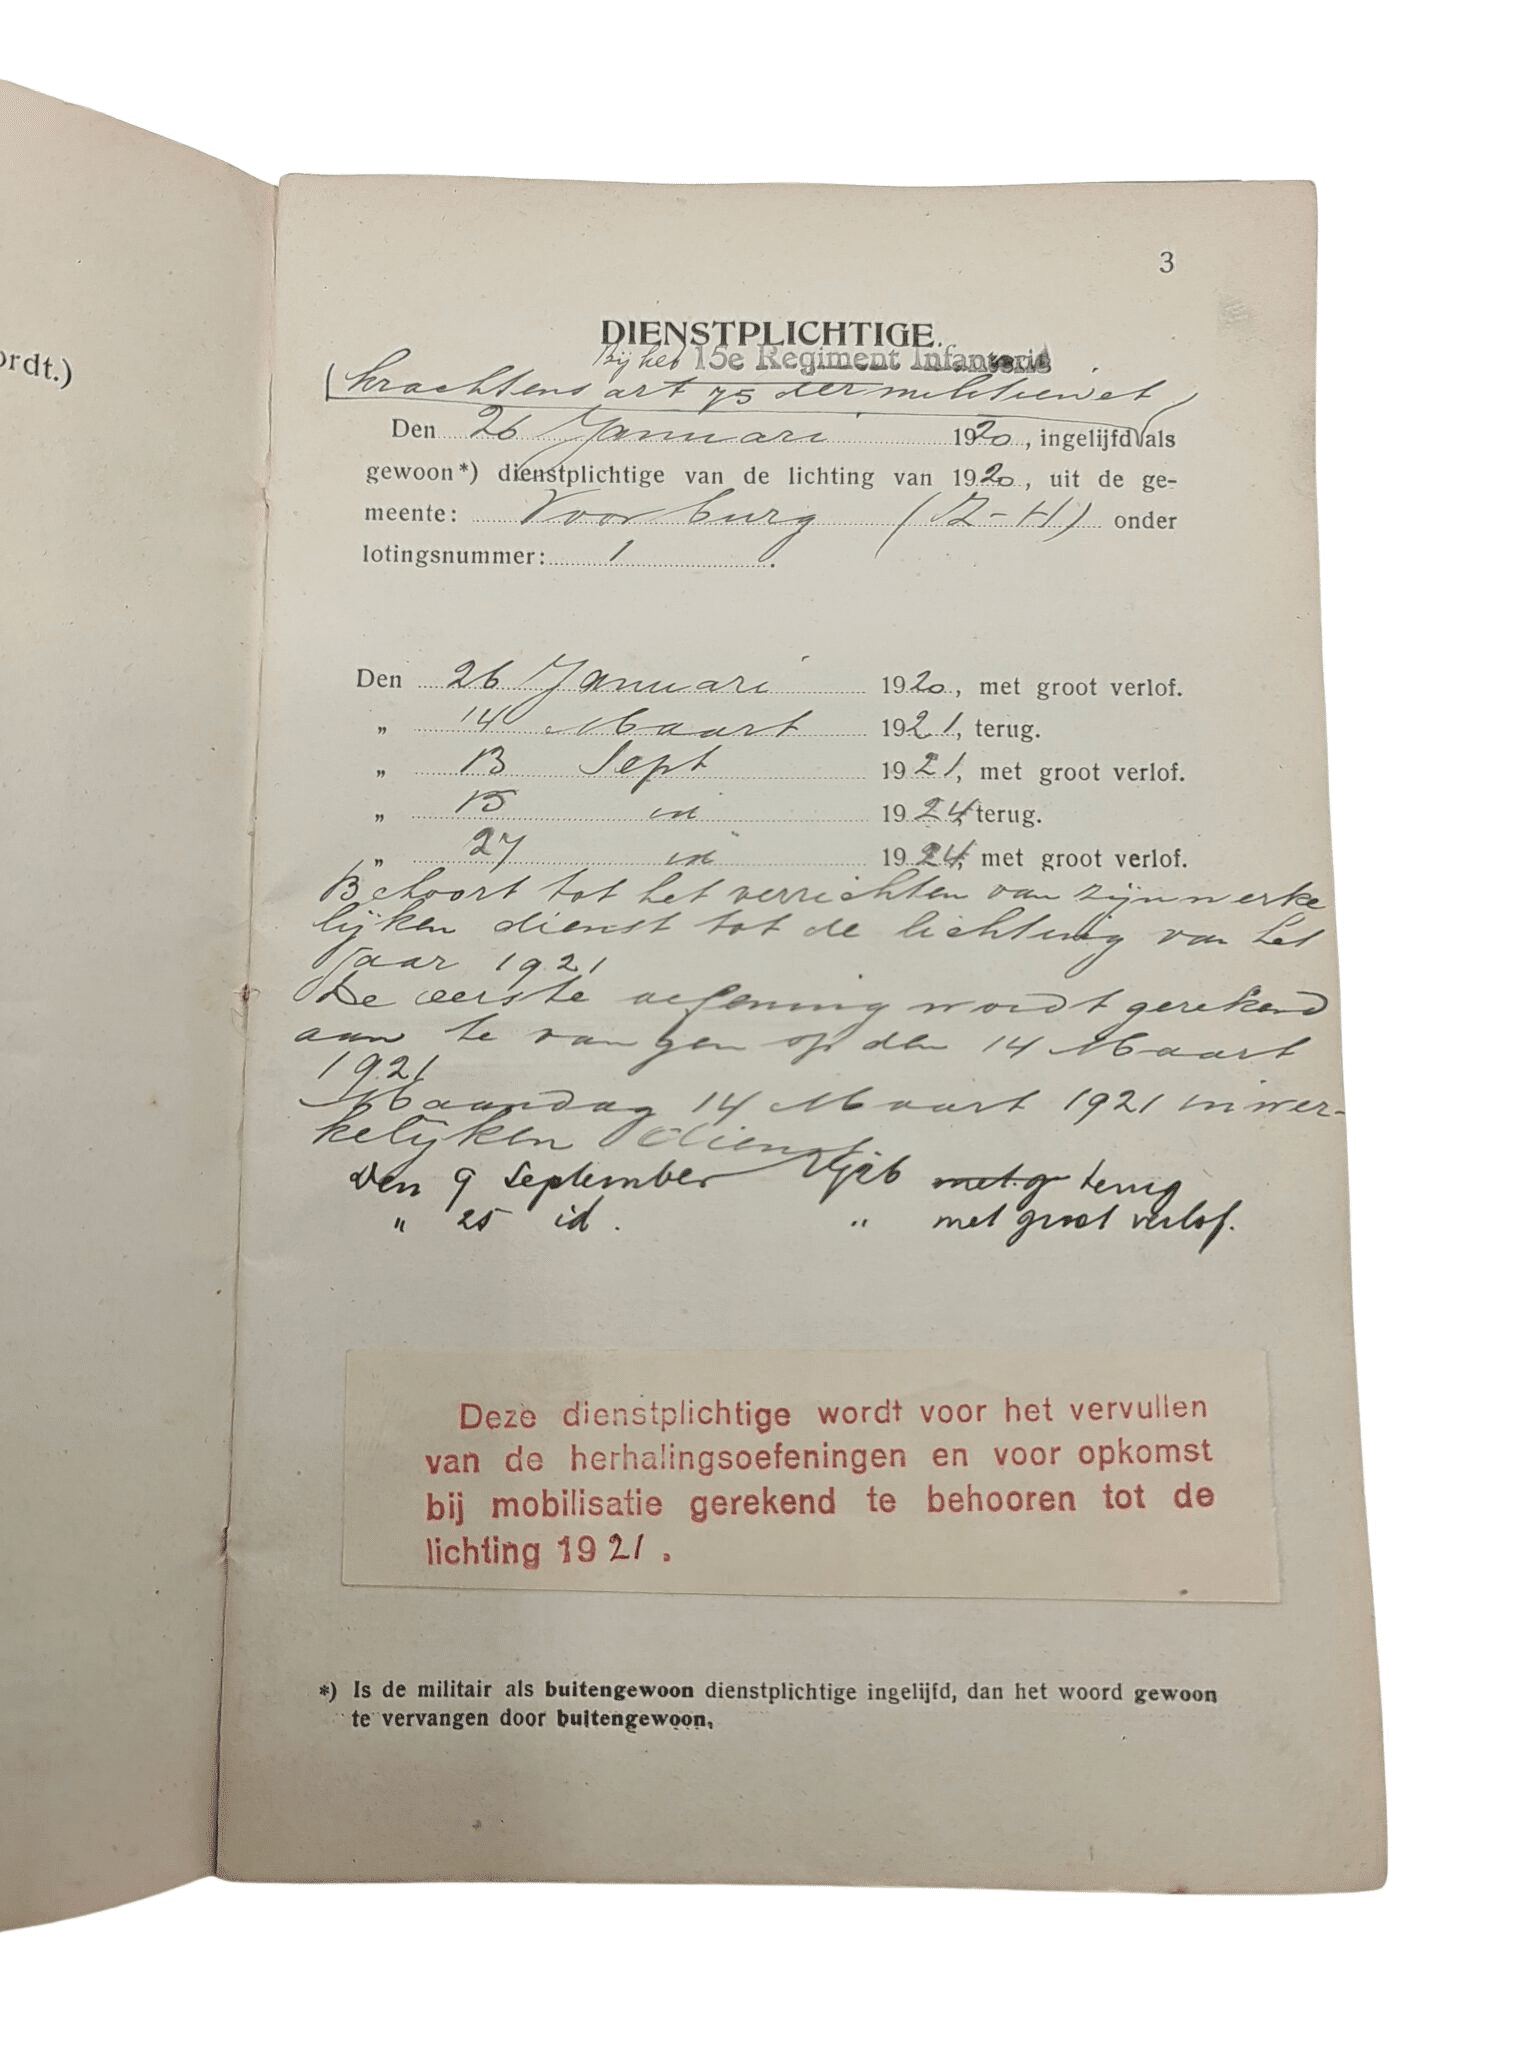 ordt.)
3
DIENSTPLICHTIGE.
bij het 15e Regiment Infanterie
(krachtens art 75 der militiewet)
Den 26 Januari 1920, ingelijfd als
gewoon*) dienstplichtige van de lichting van 1920, uit de ge-
meente: Voorburg (Z-H) onder
lotingsnummer: 1.
Den 26 Januari 1920, met groot verlof.
„ 14 Maart 1921, terug.
„ 13 Sept 1921, met groot verlof.
„ 15 id 1924, terug.
„ 27 id 1924, met groot verlof.
Behoort tot het verrichten van zijn werke
lijken dienst tot de lichting van het
Jaar 1921
De eerste oefening wordt gerekend
aan te vangen op den 14 Maart
1921
Maandag 14 Maart 1921 in wer-
kelijken dienst
Den 9 september 1926 met g terug
„ 25 id. „ met groot verlof.
Deze dienstplichtige wordt voor het vervullen
van de herhalingsoefeningen en voor opkomst
bij mobilisatie gerekend te behooren tot de
lichting 1921.
*) Is de militair als buitengewoon dienstplichtige ingelijfd, dan het woord gewoon
te vervangen door buitengewoon.